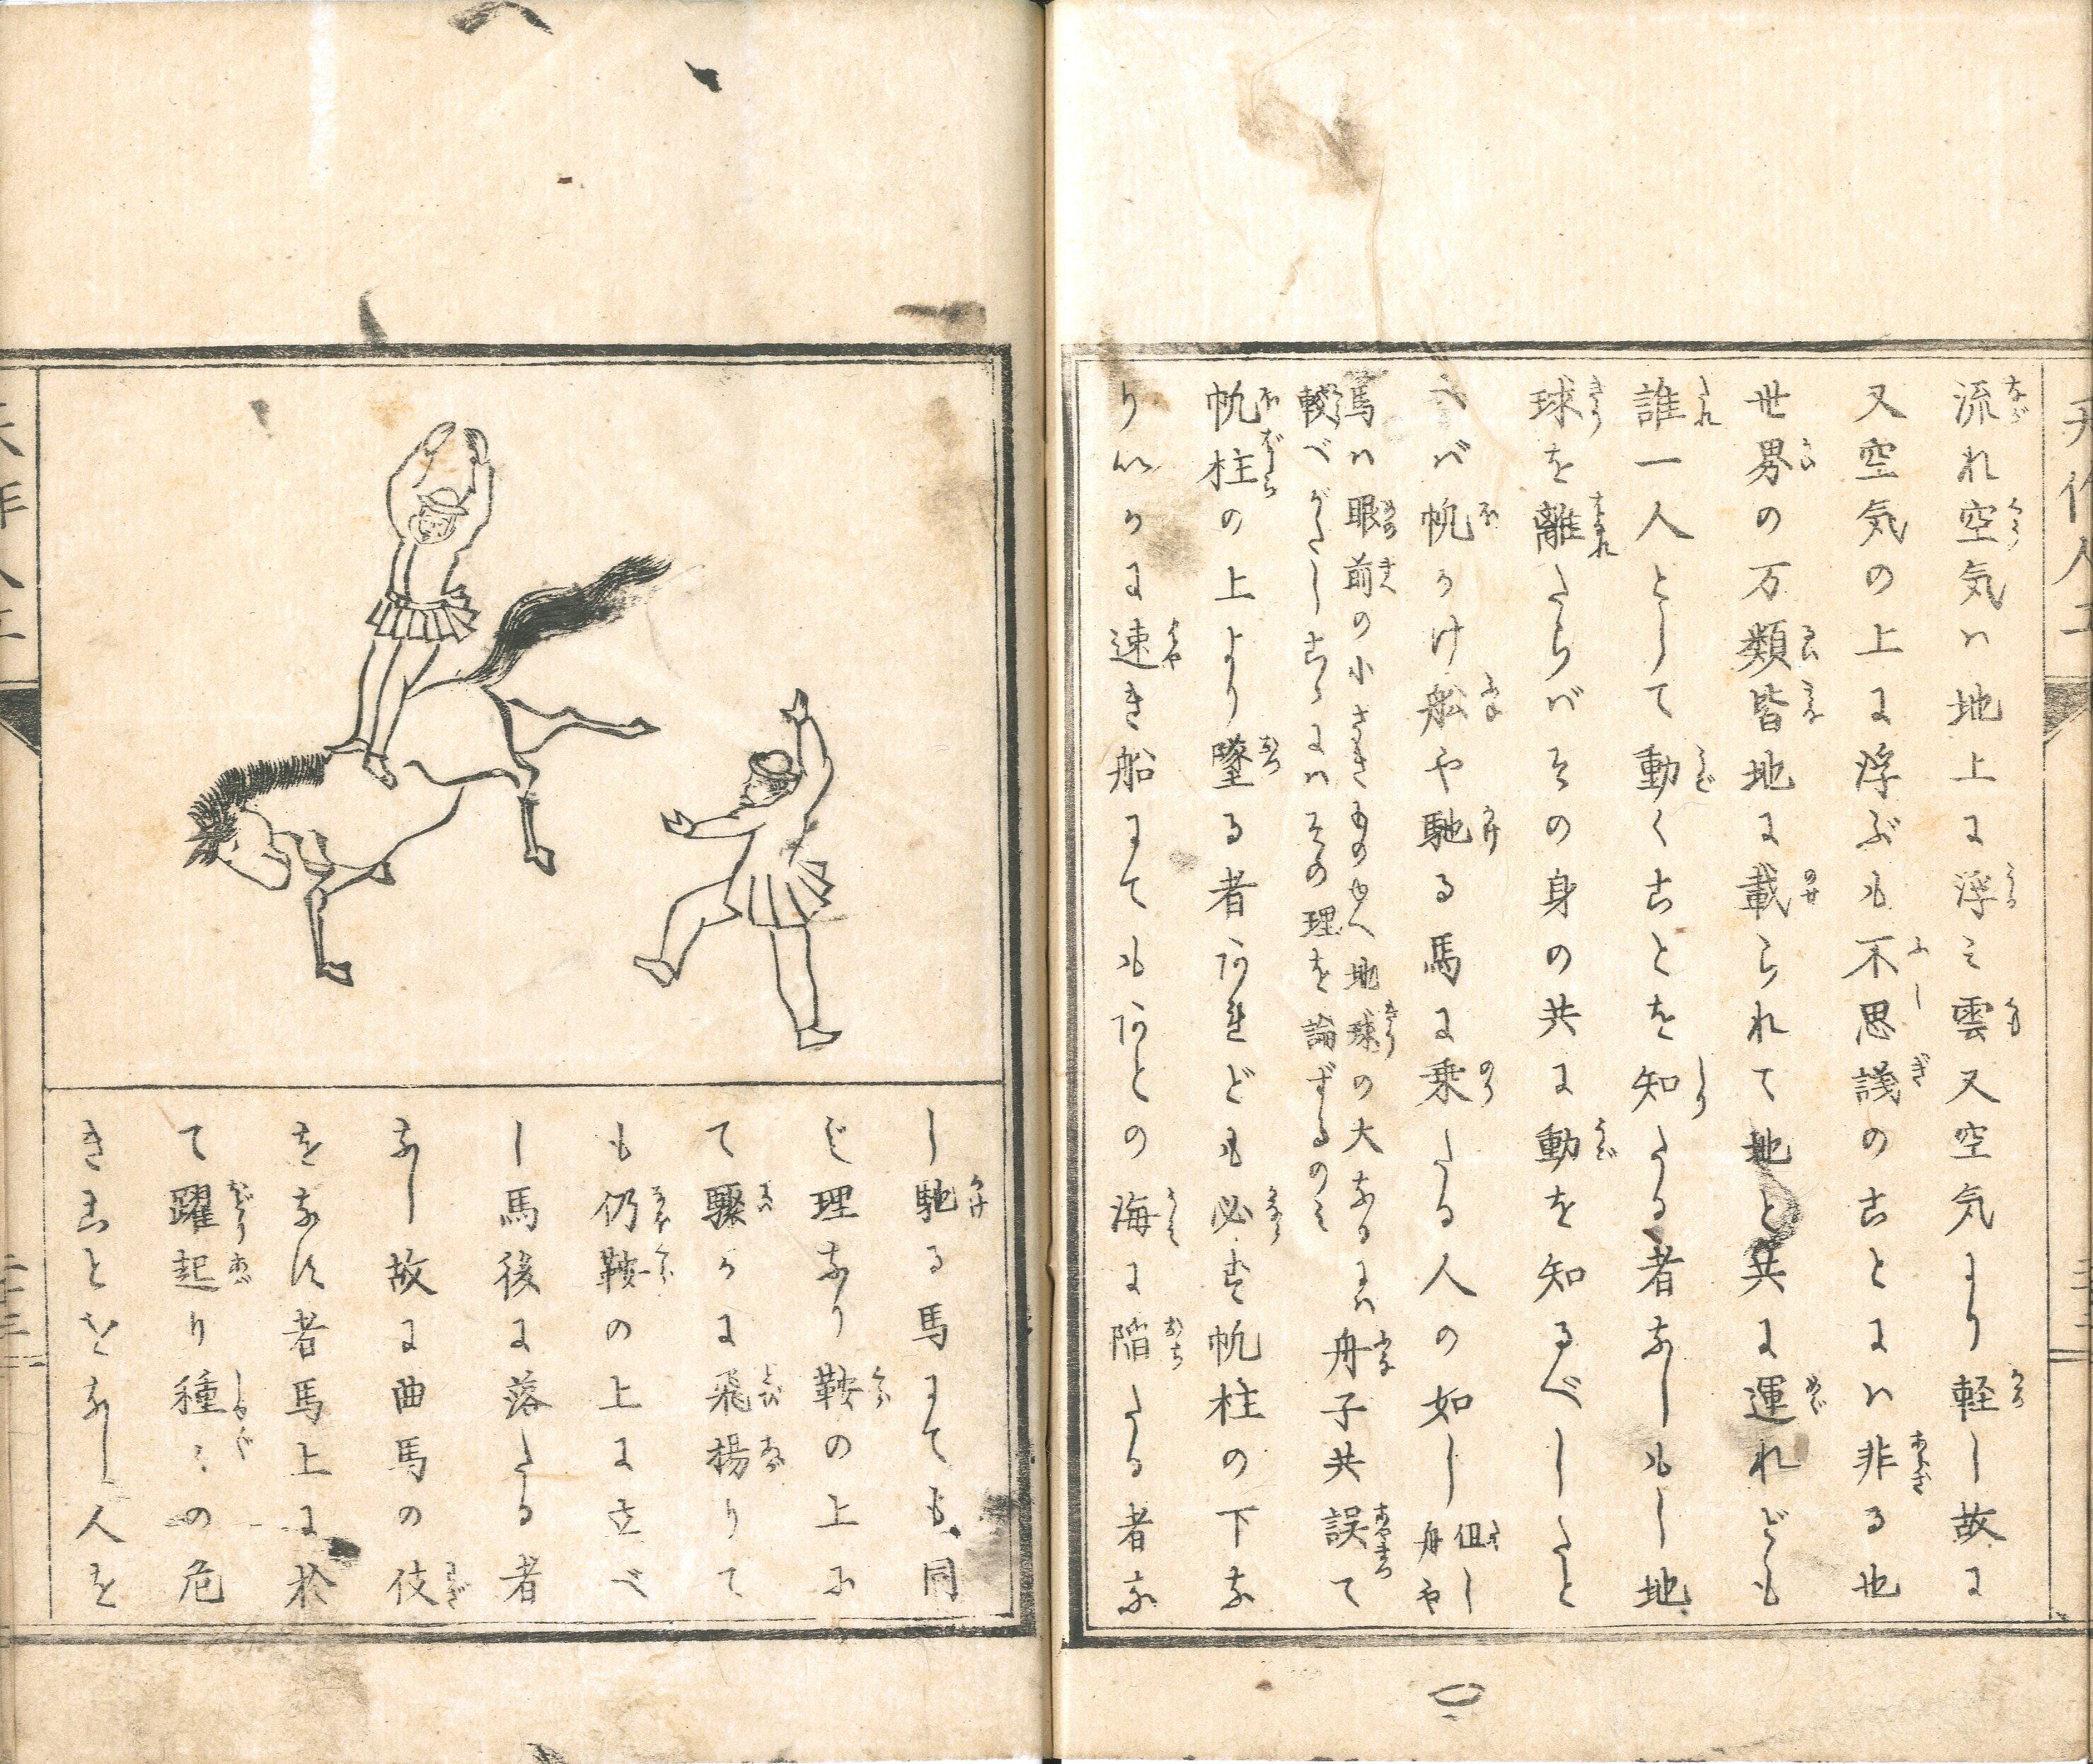 流れ空気ハ地上に浮ミ雲又空気より軽し故に
又空気の上に浮ぶも不思議のことにハ非る也
世界の万類皆地に載られて地と共に運れども
誰一人として動くことを知たる者なしもし地
球を離たらバその身の共に動を知るべしたと
へバ帆かけ船や馳る馬に乗たる人の如し但し舟や
馬ハ眼前の小さきものゆへ地球の大なるにハ
較べがたしこゝにハその理を論ずるのミ
舟子共誤て
帆柱の上より墜る者あれども必ず帆柱の下な
りいかに速き船にてもあとの海に陥たる者な
し馳る馬にても同
じ理なり鞍の上に
て驟かに飛揚りて
も仍鞍の上に立べ
し馬後に落たる者
なし故に曲馬の伎
をなす者馬上に於
て躍起り種々の危
きことをなし人を